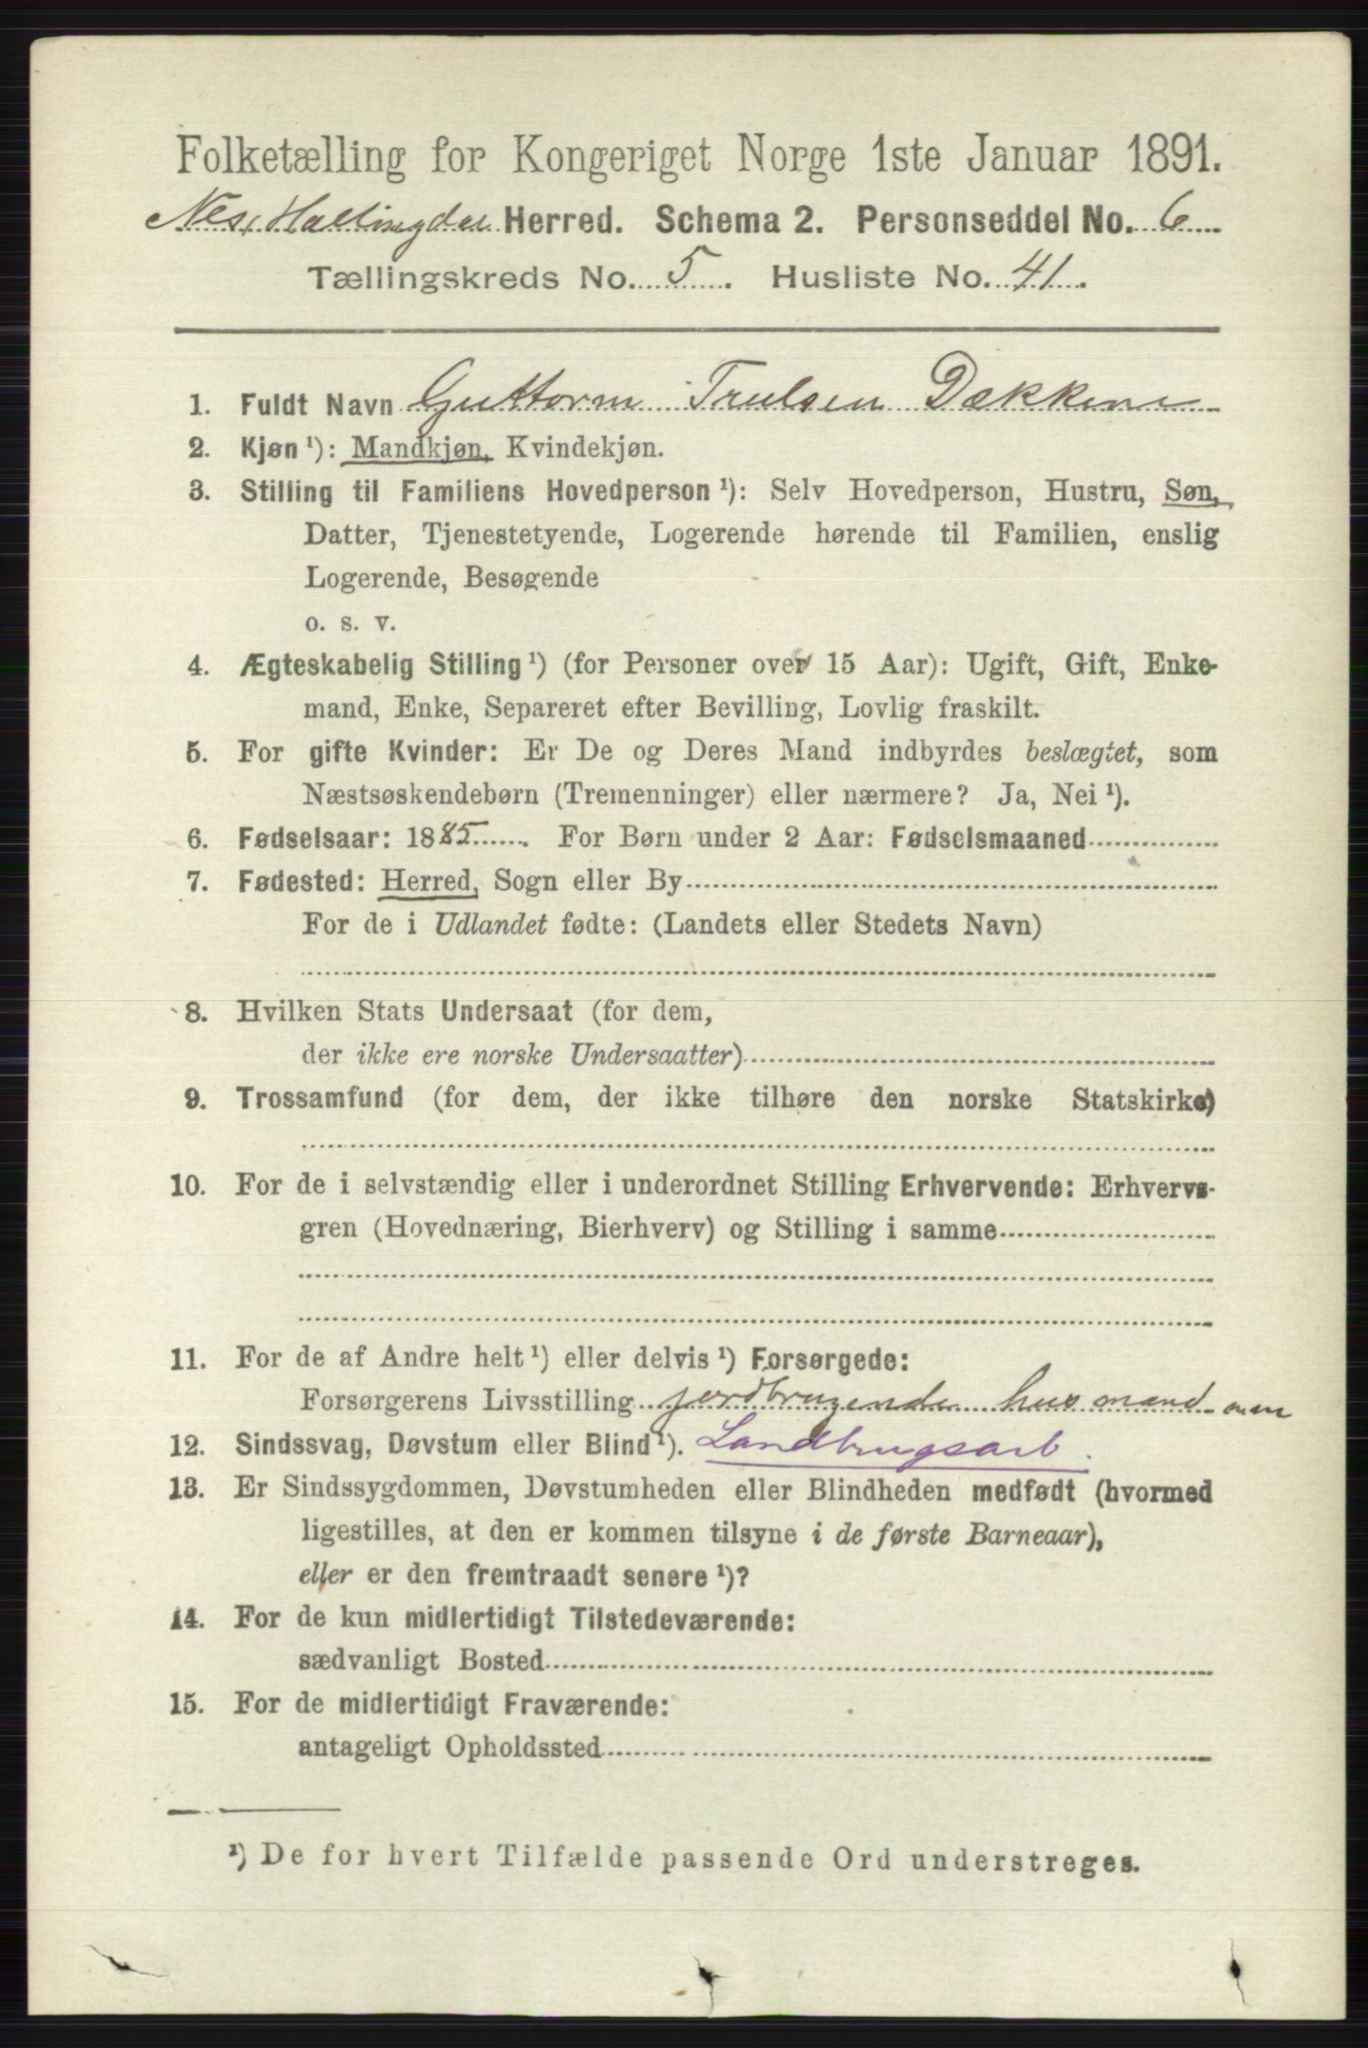 Folketælling for Kongeriget Norge 1ste Januar 1891.
Nes, Hallingdal Herred. Schema 2. Personseddel No. 6
Tællingskreds No. 5. Husliste No. 41.
1. Fuldt Navn Guttorm Trulsen Dækkene
2. Kjøn ¹): Mandkjøn, Kvindekjøn.
3. Stilling til Familiens Hovedperson ¹): Selv Hovedperson, Hustru, Søn,
Datter, Tjenestetyende, Logerende hørende til Familien, enslig
Logerende, Besøgende
o. s. v.
4. Ægteskabelig Stilling ¹) (for Personer over 15 Aar): Ugift, Gift, Enke-
mand, Enke, Separeret efter Bevilling, Lovlig fraskilt.
5. For gifte Kvinder: Er De og Deres Mand indbyrdes beslægtet, som
Næstsøskendebørn (Tremenninger) eller nærmere? Ja, Nei ¹).
6. Fødselsaar: 1885. For Børn under 2 Aar: Fødselsmaaned
7. Fødested: Herred, Sogn eller By
For de i Udlandet fødte: (Landets eller Stedets Navn)
8. Hvilken Stats Undersaat (for dem,
der ikke ere norske Undersaatter)
9. Trossamfund (for dem, der ikke tilhøre den norske Statskirke)
10. For de i selvstændig eller i underordnet Stilling Erhvervende: Erhvervs-
gren (Hovednæring, Bierhverv) og Stilling i samme
11. For de af Andre helt ¹) eller delvis ¹) Forsørgede:
Forsørgerens Livsstilling jordbrugende husmand
12. Sindssvag, Døvstum eller Blind ¹). Landbrugsarb.
13. Er Sindssygdommen, Døvstumheden eller Blindheden medfødt (hvormed
ligestilles, at den er kommen tilsyne i de første Barneaar),
eller er den fremtraadt senere ¹)?
14. For de kun midlertidigt Tilstedeværende:
sædvanligt Bosted
15. For de midlertidigt Fraværende:
antageligt Opholdssted
¹) De for hvert Tilfælde passende Ord understreges.